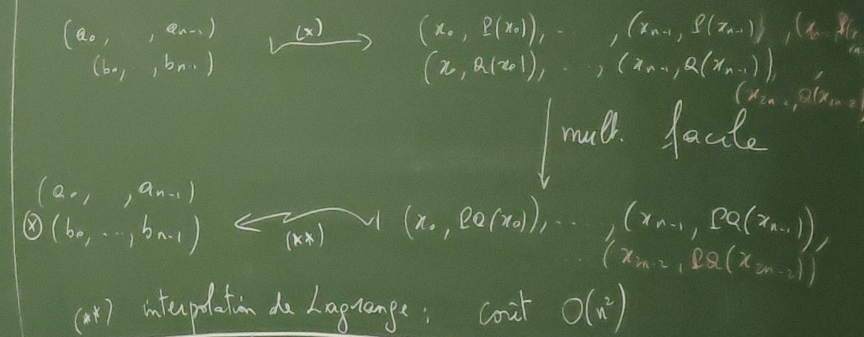 (a₀, . . , aₙ₋₁) (x) (x₀, P(x₀)), . . , (xₙ₋₁, P(xₙ₋₁)), (xₙ
(b₀, . , bₙ₋₁) (x, Q(x₀)), . . , (xₙ₋₁, Q(xₙ₋₁)),
(x₂ₙ₋₂, Q(x₂ₙ₋₂)
mult. facile
(a₀, , aₙ₋₁)
⊗ (b₀, ..., bₙ₋₁) (**) (x₀, PQ(x₀)), ..., (xₙ₋₁, PQ(xₙ₋₁)),
... (x₂ₙ₋₂, PQ(x₂ₙ₋₂))
(**) interpolation de Lagrange : coût O(n²)